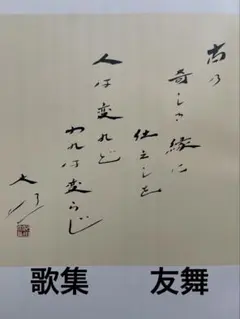 奇しき縁に
仕立しを
人は変れど
われは変らじ
歌集 友舞